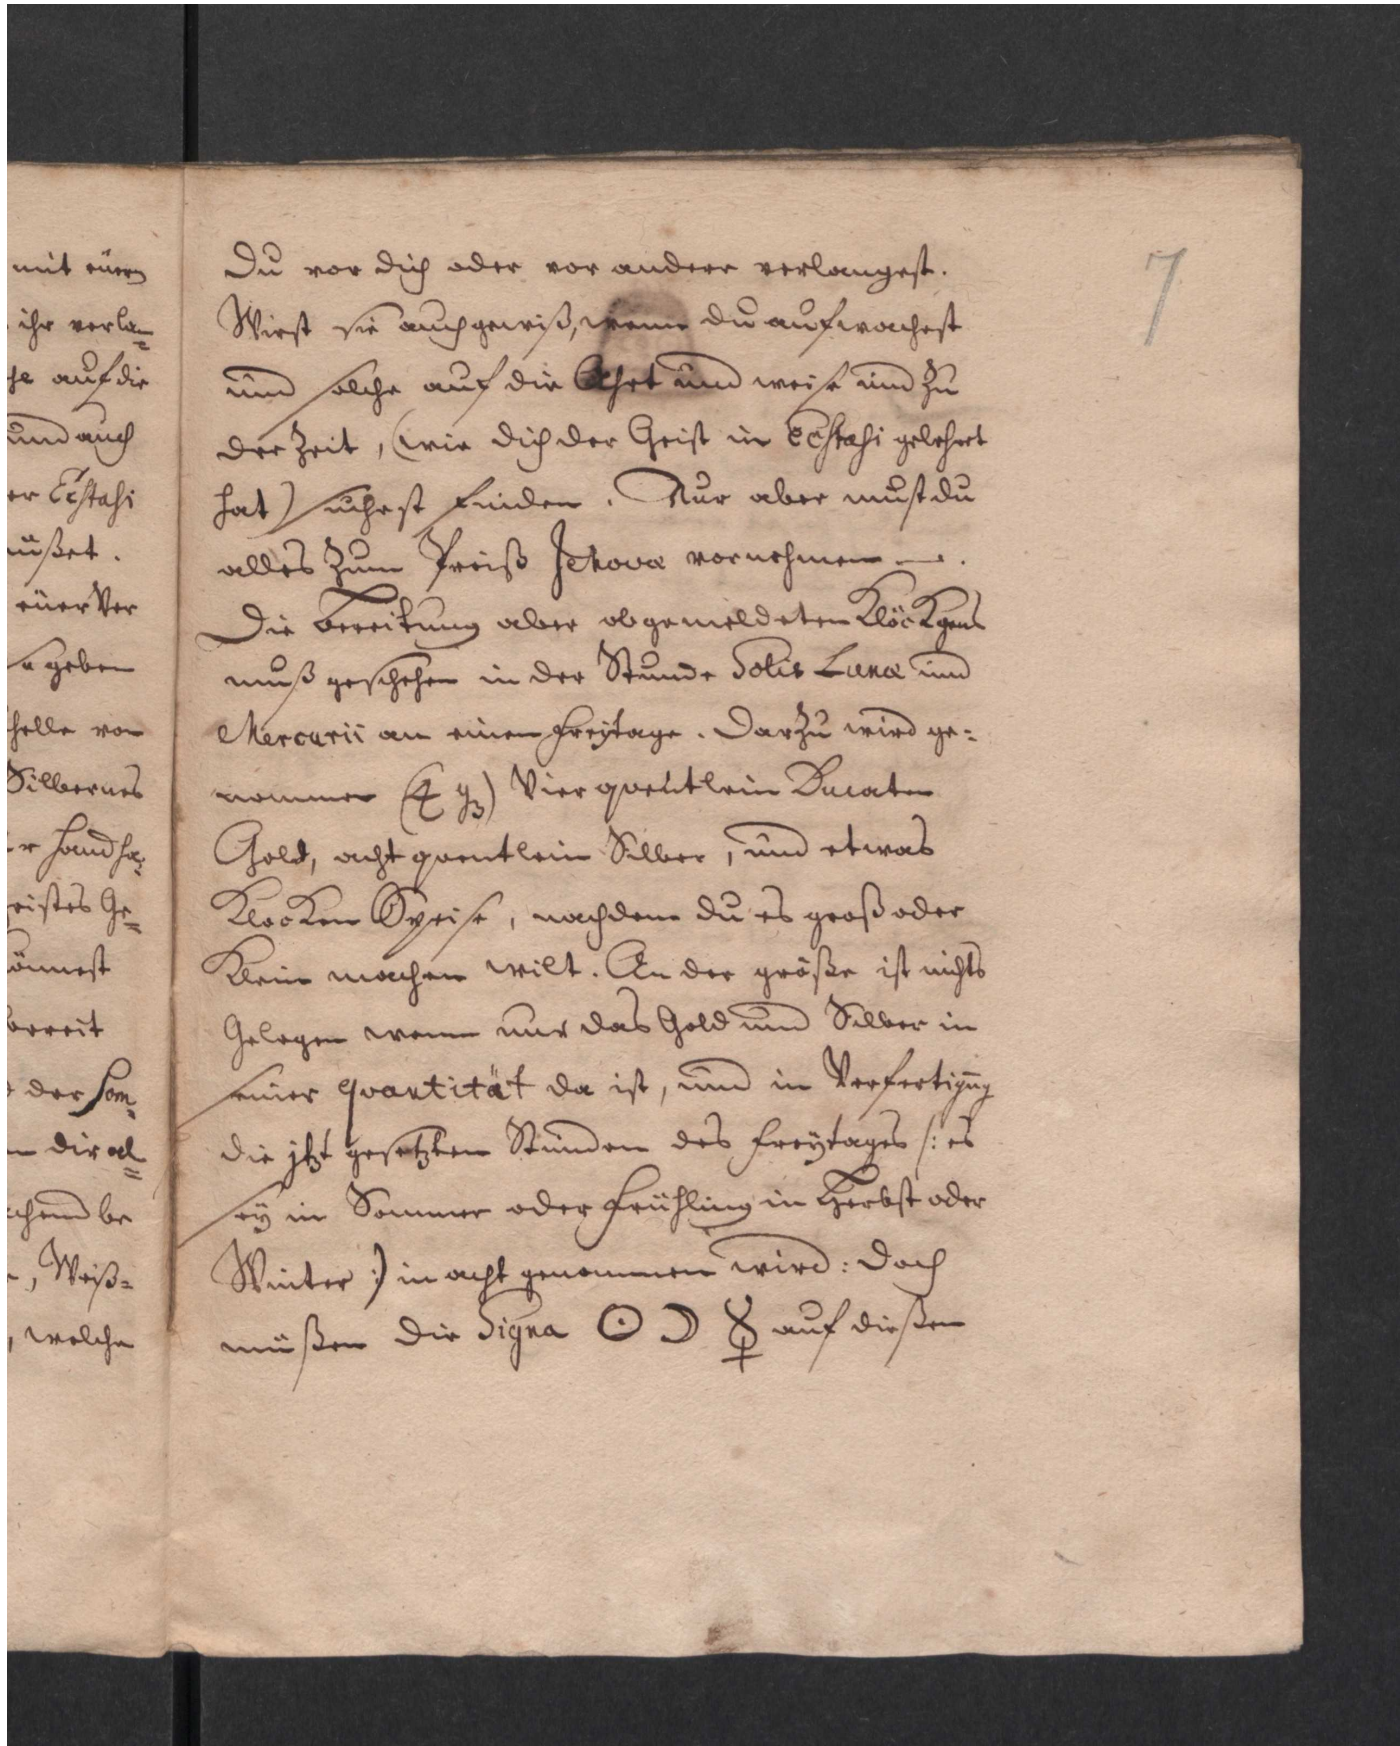 mit eüern
ihr verla=
he auf die
und auch
er Ecstasi
üßet.
eüer Ver
geben
helle von
Silbernes
r handha=
eistes Ge=
önnest
bereit
der Som=
dir al=
chend be
, Weiß=
, welche
7
Du vor dich oder vor andere verlangest.
Wirst sie auch gewiß, wenn du aufwachest
und solche auf die Ahrt und weise und zu
der Zeit, (wie dich der Geist in Ecstasi gelehret
hat) suchest finden. Nur aber must du
alles zum Preiß Jehovæ vornehmen —.
Die bereitung aber obgemeldeten Klöckgens
muß geschehen in der Stunde Solis Lunæ und
Mercurii an einen Freÿtage. Darzu wird ge=
nommen Vier qventlein Ducaten
Gold, acht qventlein Silber, und etwas
Klocken Speise, nachdem du es groß oder
Klein machen wilt. An der größe ist nichts
Gelegen wenn nur das Gold und Silber in
seiner qvantität da ist, und in Verfertigūg
die jtzt gesetzten Stunden des Freÿtages /: es
seÿ in Sommer oder Frühling in Herbst oder
Winter :) in acht genommen wird: Doch
müßen die Signa ☉ ☽ ☿ auf dießen